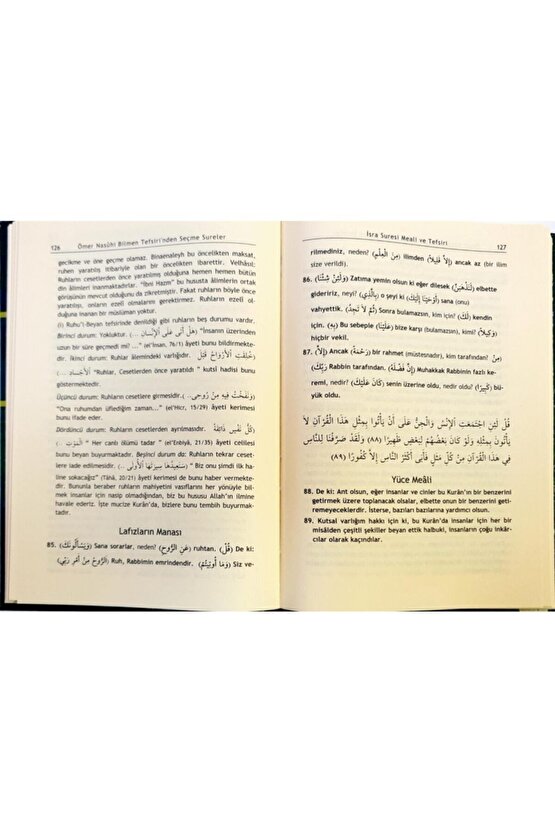 126 Ömer Nasûhi Bilmen Tefsiri'nden Seçme Sureler
gecikme ve öne geçme olamaz. Binaenaleyh bu öncelikten maksat,
ruhen yaratılış itibariyle olan bir öncelikten ibarettir. Velhâsıl;
Ruhların cesetlerden önce yaratılmış olduğuna hemen hemen bütün
din âlimleri inanmaktadırlar. "İbni Hazm" bu hususta âlimlerin ortak
görüşünün mevcut olduğunu da zikretmiştir. Fakat ruhların böyle önce
yaratılışı, onların ezelî olmalarını gerektirmez. Ruhların ezelî
olduğuna inanan bir müslüman yoktur.
(i) Ruhu'l-Beyan tefsirinde denildiği gibi ruhların beş durumu vardır.
Birinci durum: Yokluktur. (هَلْ أَتَى عَلَى الْإِنْسَانِ ...) "İnsanın üzerinden
uzun bir süre geçmedi mi? ..." (el'İnsan, 76/1) âyeti bunu bildirmekte-
dir. İkinci durum: Ruhlar âlemindeki varlığıdır. (خُلِقَتِ الْأَرْوَاحُ قَبْلَ
الْأَجْسَادِ ...) "Ruhlar, Cesetlerden önce yaratıldı " kutsî hadisi bunu
göstermektedir.
Üçüncü durum: Ruhların cesetlere girmesidir. (وَنَفَخْتُ فِيهِ مِنْ رُوحِي..)
"Ona ruhumdan üflediğim zaman..." (el'Hıcr, 15/29) âyeti kerimesi
bunu ifade eder.
Dördüncü durum: Ruhların cesetlerden ayrılmasıdır. (كُلُّ نَفْسٍ ذَائِقَةُ
الْمَوْتِ ..) " Her canlı ölümü tadar " (el'Enbiyâ, 21/35) âyeti celîlesi
bunu beyan buyurmaktadır. Beşinci durum da: Ruhların tekrar ceset-
lere iade edilmesidir. (سَنُعِيدُهَا سِيرَتَهَا الْأُولَى ..) " Biz onu şimdi ilk ha-
line sokacağız" (Tâhâ, 20/21) âyeti kerimesi de bunu haber vermekte-
dir. Bununla beraber ruhların mahiyetini vasıflarını her yönüyle bilmek
insanlar için nasip olmadığından, biz bu hususu Allah'ın ilmine
havale ederiz. İşte mucize Kurân'da, bizlere bunu tembih buyurmak-
tadır.
Lafızların Manası
85. (وَيَسْأَلُونَكَ) Sana sorarlar, neden? (عَنِ الرُّوحِ) ruhtan. (قُلِ) De ki:
(الرُّوحُ مِنْ أَمْرِ رَبِّي) Ruh, Rabbimin emrindendir. (وَمَا أُوتِيتُمْ) Siz ve-
İsra Suresi Meali ve Tefsiri 127
rilmediniz, neden? (مِنَ الْعِلْمِ) ilimden (إِلَّا قَلِيلًا) ancak az (bir ilim
size verildi).
86. (وَلَئِنْ شِئْنَا) Zatıma yemin olsun ki eğer dilesek (لَنَذْهَبَنَّ) elbette
gideririz, neyi? (بِالَّذِي) o şeyi ki (أَوْحَيْنَا إِلَيْكَ) sana (onu)
vahyettik. (ثُمَّ لَا تَجِدُ) Sonra bulamazsın, kim için? (لَكَ) kendin
için. (بِهِ) Bu sebeple (عَلَيْنَا) bize karşı (bulamazsın), kimi? (وَكِيلًا)
hiçbir vekil.
87. (إِلَّا) Ancak (رَحْمَةً) bir rahmet (müstesnadır), kim tarafından? (مِنْ
رَبِّكَ) Rabbin tarafından. (إِنَّ فَضْلَهُ) Muhakkak Rabbinin fazlı ke-
remi, nedir? (كَانَ عَلَيْكَ) senin üzerine oldu, nedir oldu? (كَبِيرًا) bü-
yük oldu.
قُلْ لَئِنِ اجْتَمَعَتِ الْإِنْسُ وَالْجِنُّ عَلَى أَنْ يَأْتُوا بِمِثْلِ هَذَا الْقُرْآنِ لَا
يَأْتُونَ بِمِثْلِهِ وَلَوْ كَانَ بَعْضُهُمْ لِبَعْضٍ ظَهِيرًا (٨٨) وَلَقَدْ صَرَّفْنَا لِلنَّاسِ
فِي هَذَا الْقُرْآنِ مِنْ كُلِّ مَثَلٍ فَأَبَى أَكْثَرُ النَّاسِ إِلَّا كُفُورًا (٨٩)
Yüce Meâli
88. De ki: Ant olsun, eğer insanlar ve cinler bu Kurân'ın bir benzerini
getirmek üzere toplanacak olsalar, elbette onun bir benzerini geti-
remeyeceklerdir. İsterse, bazıları bazılarına yardımcı olsun.
89. Kutsal varlığım hakkı için ki, bu Kurân'da insanlar için her bir
misâlden çeşitli şekiller beyan ettik halbuki, insanların çoğu inkâr-
cılar olarak kaçındılar.